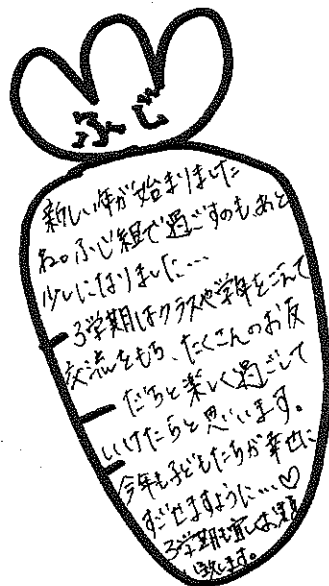 ふじ
新しい年が始まりました
ね。ふじ組で過ごすのも、あと
少しになりました…
3学期はクラスや学年をこえて
交流をもち、たくさんのお友
だちと楽しく過ごして
いけたらと思います。
今年も子どもたちが幸せに
すごせますように…♡
3学期も宜しくお願い
致します。